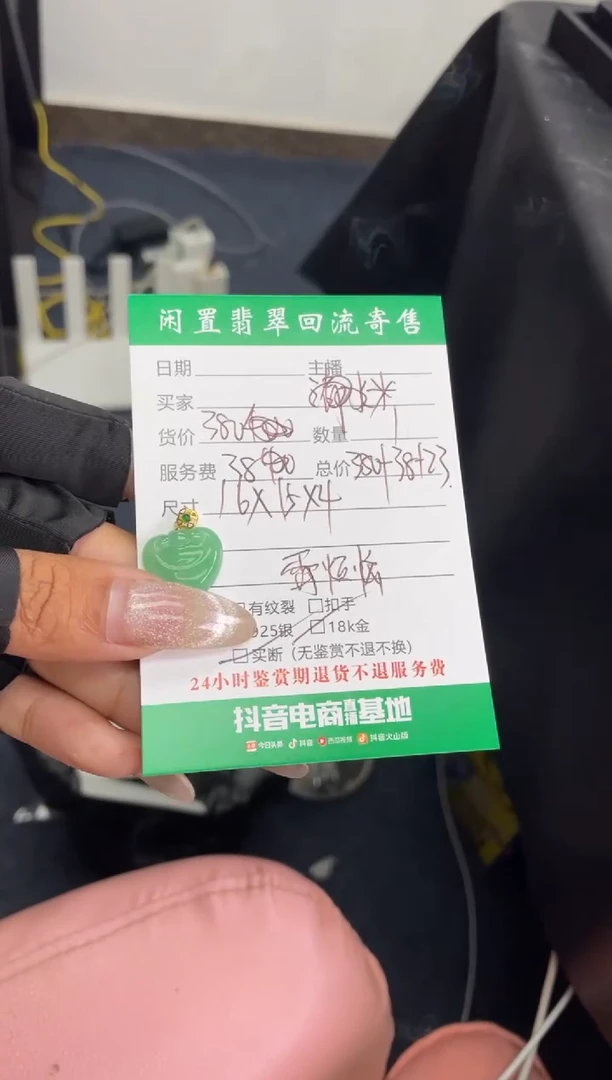 闲置翡翠回流寄售
日期 主播
买家
货价 380 数量 1
服务费 38 总价 380+38+23.
尺寸 16X15X4
有纹裂 □扣手
925银 □18k金
□买断 (无鉴赏不退不换)
24小时鉴赏期退货不退服务费
抖音电商直播基地
今日头条 抖音 西瓜视频 抖音火山版